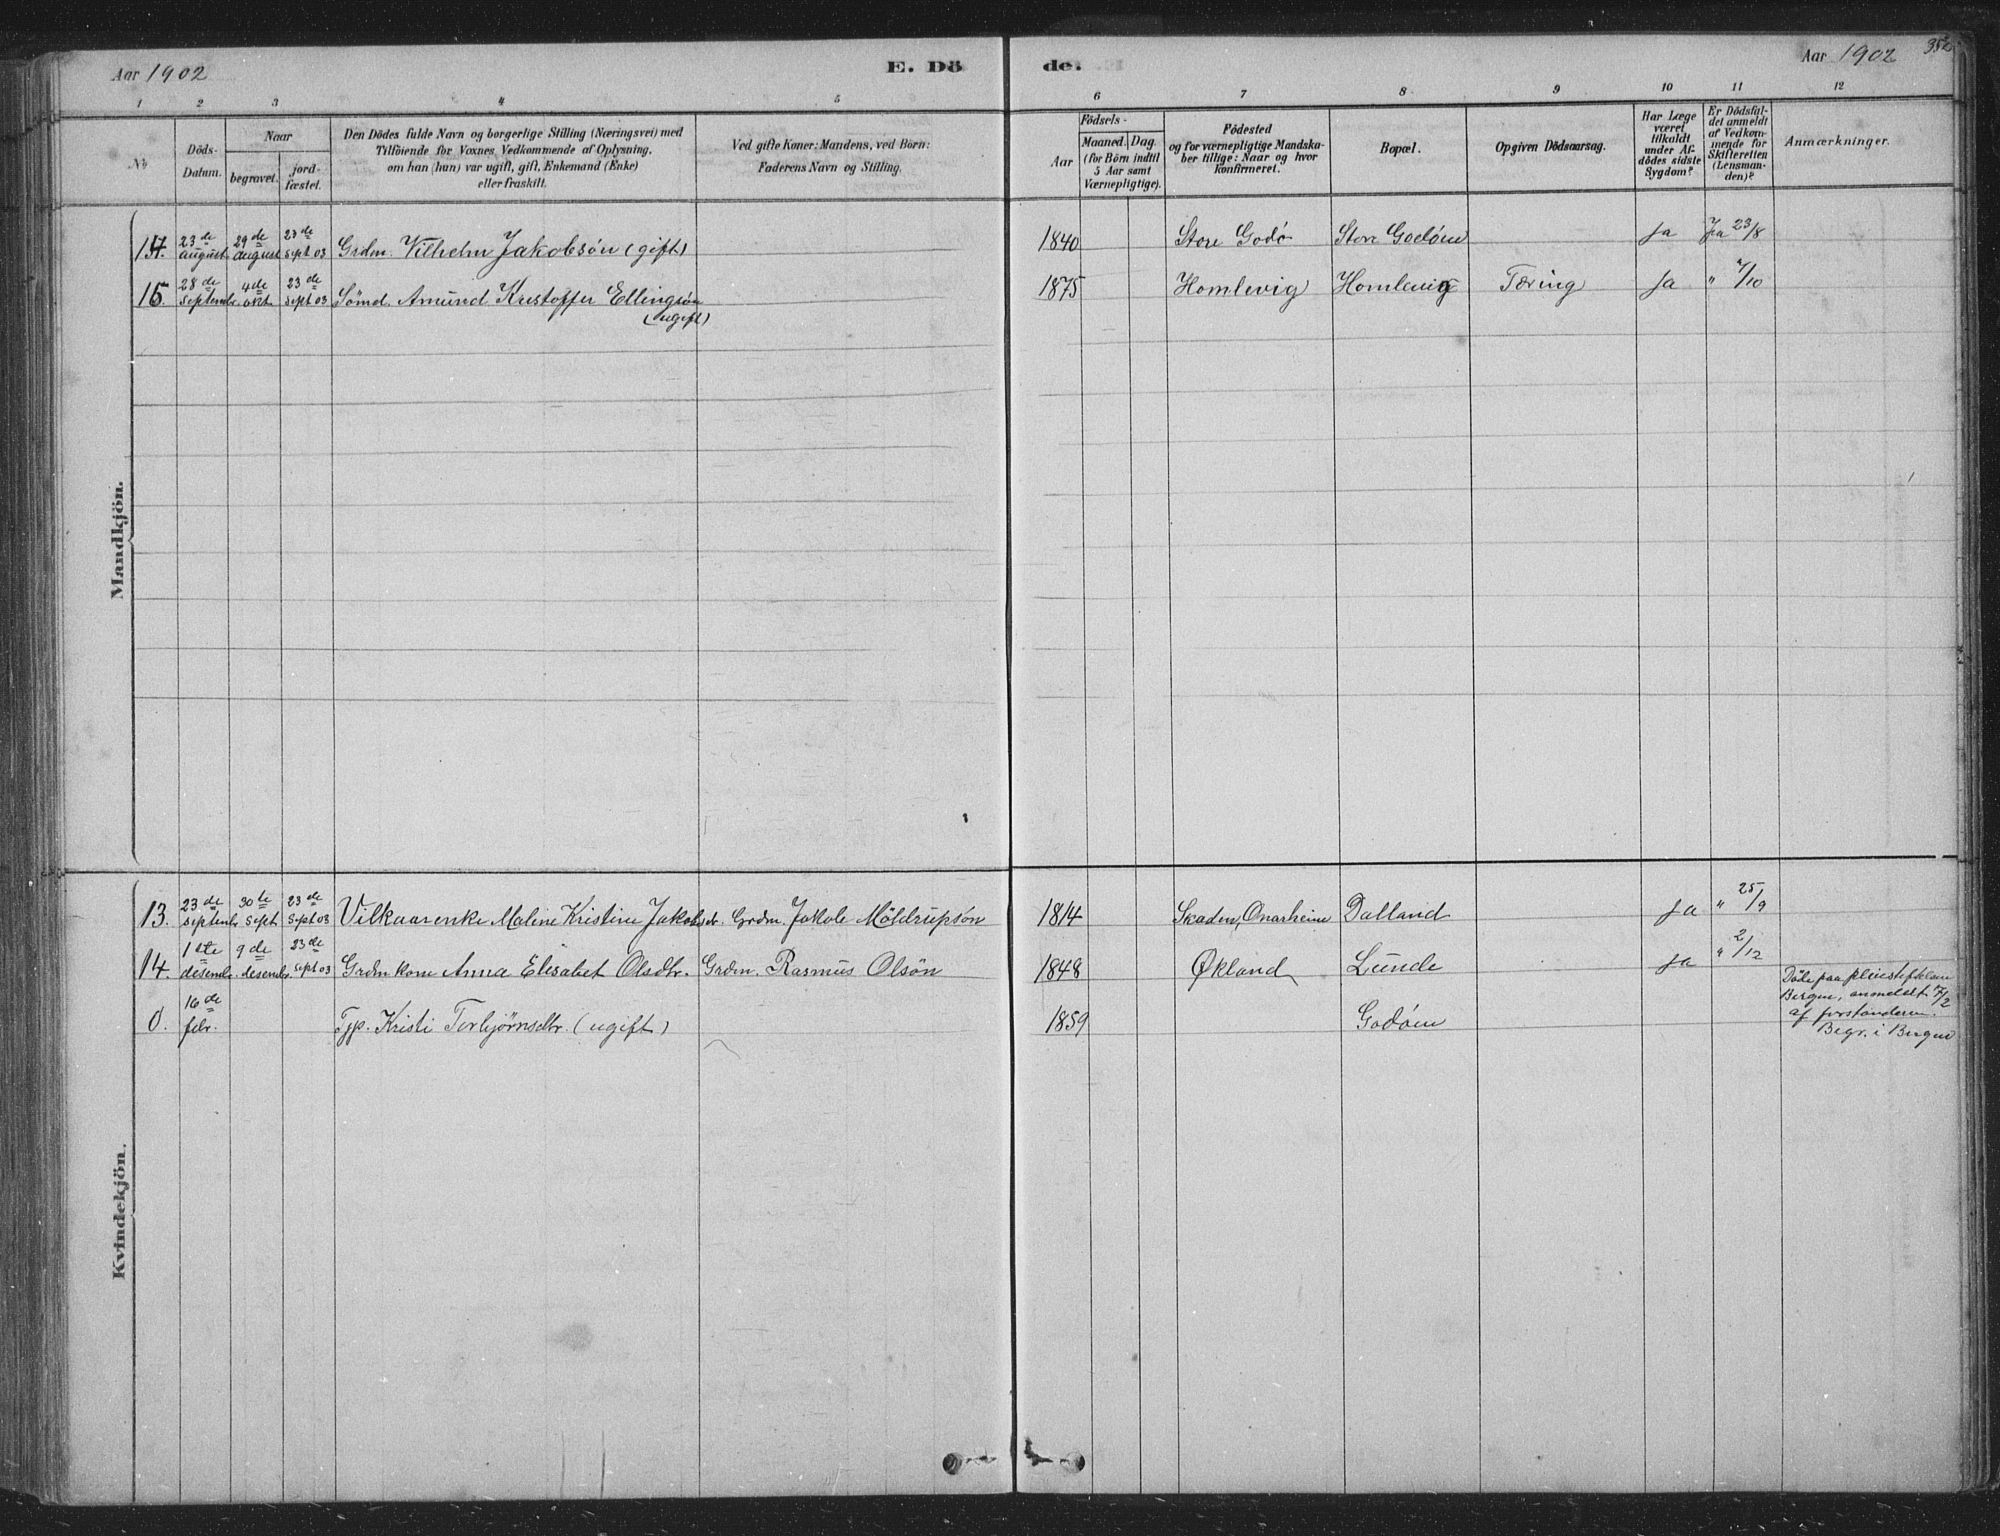 Aar 1902
E. Dö
de.
Aar 1902
352
1 2 3 4 5 6 7 8 9 10 11 12
№
Döds-
Datum.
Naar
begravet.
jord-
fæstet.
Den Dödes fulde Navn og borgerlige Stilling (Næringsvei) med
Tilföiende for Voxnes Vedkommende af Oplysning,
om han (hun) var ugift, gift, Enkemand (Enke)
eller fraskilt.
Ved gifte Koner: Mandens, ved Börn:
Faderens Navn og Stilling.
Födsels-
Aar
Maaned. Dag.
(for Börn indtil
5 Aar samt
Værnepligtige).
Födested
og for værnepligtige Mandska-
ber tillige: Naar og hvor
konfirmeret.
Bopæl.
Opgiven Dödsaarsag.
Har Læge
været
tilkaldt
under Af-
dödes sidste
Sygdom?
Er Dödsfal-
det anmeldt
af Vedkom-
mende for
Skifteretten
(Lensman-
den)?
Anmærkninger.
Mandkjön.
14. 23de august 29de august 23de sept 03 Grdm. Vilhelm Jakobsön (gift) 1840 Store Godö Store Godöm Ja Ja 23/8
15. 28de septembr. 4de okt 23de sept 03 Sömd. Amund Kristoffer Ellingsön 1875 Homlevig Homlevig Tæring Ja " /10
(ugift)
Kvindekjön.
13. 23de septembr 30te sept 23de sept 03 Vilkaarenke Maline Kristine Jakobsdr. Grdm. Jakob Möldrupsön 1814 Skaden, Onarheim Dalland Ja " 25/9
14. 1ste desembr. 9de desembr. 23de sept 03 Grdmkone Anna Elisabet Olsdtr. Grdm. Rasmus Olsön 1848 Økland Lunde Ja " 2/12
0. 16de febr. Tjp. Kristi Torbjørnsdtr. (ugift) 1859 Godöm
Döde paa pleiestiftelsen
Bergen, anmeldt /2
af forstanderen.
Begr. i Bergen